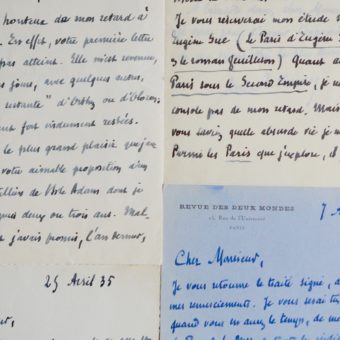 honteux de mon retard à
. En effet, votre première lettre
pas atteint. Elle m'est revenue,
jours, avec quelques autres,
restante" d'
sont fort visdument restées.
le plus grand plaisir que j'en
votre aimable proposition d'un
de l'Isle Adam dont je
deux ou trois ans. Mal-
j'avais promis, l'an dernier,
25 Avril 35
Je vous réserverai mon étude s
Eugène Sue (le Paris d'Eugène S
le roman feuilleton) Quant a
Paris sous le Second Empire, je
console pas de mon retard. Mais
vous savez quelle absurde vie je m
Parmi les Paris que j'explore, il
REVUE DES DEUX MONDES
15, Rue de l'Université
PARIS
7
Cher Monsieur,
Je vous retourne le traité signé, a
mes remerciements. Je vous serai
quand vous en aurez le temps, de me